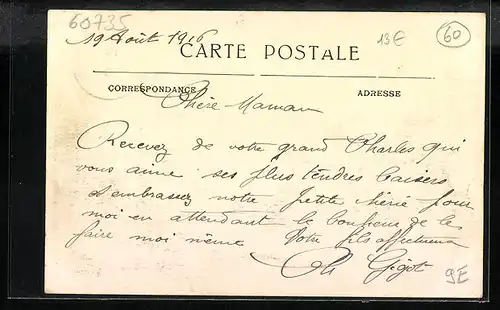 60735
19 Août 1916
CARTE POSTALE
13€
60
CORRESPONDANCE
ADRESSE
Chère Maman
Recevez de votre grand Charles qui
vous aime ses plus tendres baisers
d'embrassez notre petite Mérié pour
moi en attendant le bonheur de les
faire moi même Votre fils affectueux
Ch Gigot
9E